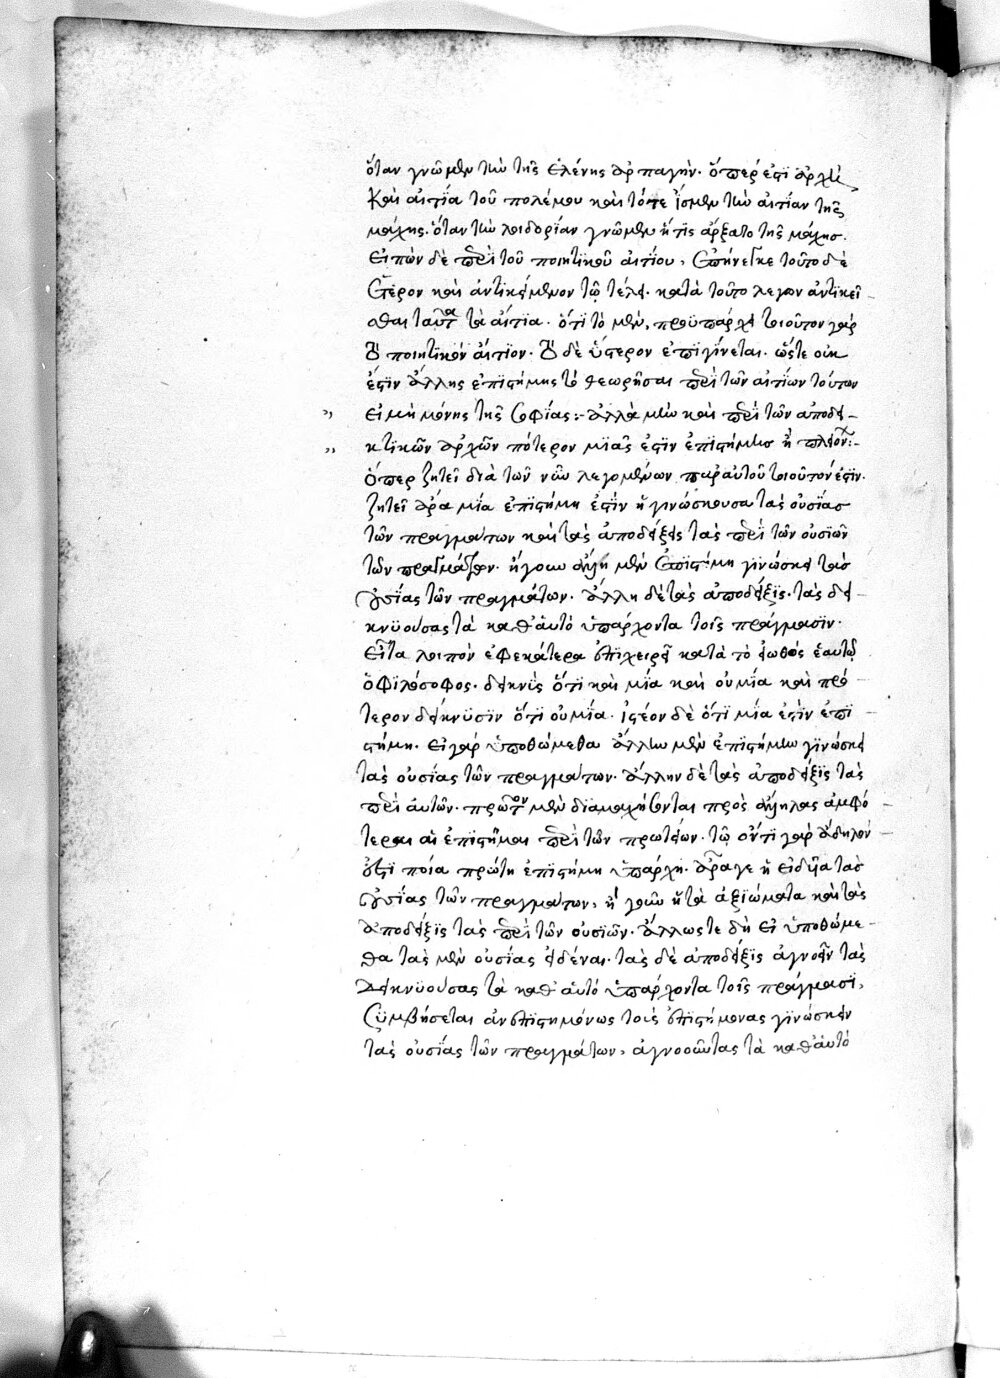 ὅταν γνῶμεν τὴν τῆς ἑλένης ἁρπαγήν. ὅπέρ ἐστιν ἀρχὴ
καὶ αἰτία τοῦ πολέμου καὶ τότε ἴσμεν τὴν αἰτίαν τῆς
μάχης. ὅταν τὴν λοιδορίαν γνῶμεν ἥτις ἄρξατο τῆς μάχης.
εἰπὼν δὲ περὶ τοῦ ποιητικοῦ αἰτίου, ἐπήνεγκε τοῦτο δὲ
ἕτερον καὶ ἀντικείμενον τῷ τέλει. κατὰ τοῦτο λέγων ἀντικεῖ-
σθαι ταῦτα τὰ αἴτια. ὅτι τὸ μὲν, προϋπάρχει τοιοῦτον γάρ
τὸ ποιητικὸν αἴτιον. τὸ δὲ ὕστερον ἐπιγίνεται. ὥστε οὐκ
ἔστιν ἄλλης ἐπιστήμης τὸ θεωρῆσαι περὶ τῶν αἰτίων τούτων
„ εἰ μὴ μόνης τῆς σοφίας:- ἀλλὰ μὴν καὶ περὶ τῶν ἀποδει-
„ κτικῶν ἀρχῶν πότερον μιᾶς ἐστιν ἐπιστήμης ἢ πλειόνων:-
ὅπερ ζητεῖ διὰ τῶν νῦν λεγομένων παρ' αὐτοῦ τοιοῦτόν ἐστιν.
ζητεῖ ἆρα μία ἐπιστήμη ἐστὶν ἡ γινώσκουσα τὰς οὐσίας
τῶν πραγμάτων καὶ τὰς ἀποδείξεις τὰς περὶ τῶν οὐσιῶν
τῶν πραγμάτων. ἤγουν ἄλλη μὲν ἐπιστήμη γινώσκει τὰς
οὐσίας τῶν πραγμάτων. ἄλλη δὲ τὰς ἀποδείξεις. τὰς δει-
κνυούσας τὰ καθ' αὑτὸ ὑπάρχοντα τοῖς πράγμασιν.
εἶτα λοιπὸν ἐφ' ἑκάτερα ἐπιχειρεῖ κατὰ τὸ εἰωθὸς ἑαυτῷ
ὁ φιλόσοφος. δεικνὺς ὅτι καὶ μία καὶ οὐ μία καὶ πρό-
τερον δείκνυσιν ὅτι οὐ μία. ἰστέον δὲ ὅτι μία ἐστὶν ἐπι-
στήμη. εἰ γὰρ ὑποθώμεθα ἄλλην μὲν ἐπιστήμην γινώσκειν
τὰς οὐσίας τῶν πραγμάτων. ἄλλην δὲ τὰς ἀποδείξεις τὰς
περὶ αὐτῶν. πρῶτον μὲν διαμαχήσονται πρὸς ἀλλήλας ἀμφό-
τεραι αἱ ἐπιστῆμαι περὶ τῶν πρωτείων. τῷ ὄντι γὰρ ἄδηλον
ὅτι ποία πρώτη ἐπιστήμη ὑπάρχει. ἆραγε ἡ εἰδυῖα τὰς
οὐσίας τῶν πραγμάτων, ἢ γοῦν ἡ τὰ ἀξιώματα καὶ τὰς
ἀποδείξεις τὰς περὶ τῶν οὐσιῶν. ἄλλως τε δὴ εἰ ὑποθώμε-
θα τὰς μὲν οὐσίας εἰδέναι. τὰς δὲ ἀποδείξεις ἀγνοεῖν τὰς
δεικνυούσας τὰ καθ' αὑτὸ ὑπάρχοντα τοῖς πράγμασι,
συμβήσεται ἀνεπιστημόνως τοὺς ἐπιστήμονας γινώσκειν
τὰς οὐσίας τῶν πραγμάτων, ἀγνοοῦντας τὰ καθ' αὑτὸ